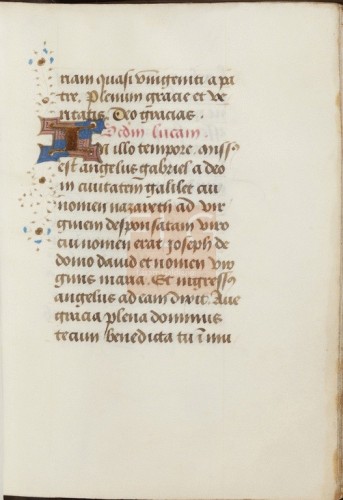 riam quasi vnigeniti a pa
tre. Plenum gracie et ve
ritatis. Deo gracias.
Scdm lucam.
In illo tempore. miss
est angelus gabriel a deo
in ciuitatem galilee cui
nomen nazareth ad vir
ginem desponsatam viro
cui nomen erat ioseph de
domo dauid et nomen vir
ginis maria. Et ingress
angelus ad eam dixit. Aue
gracia plena dominus
tecum benedicta tu i mu